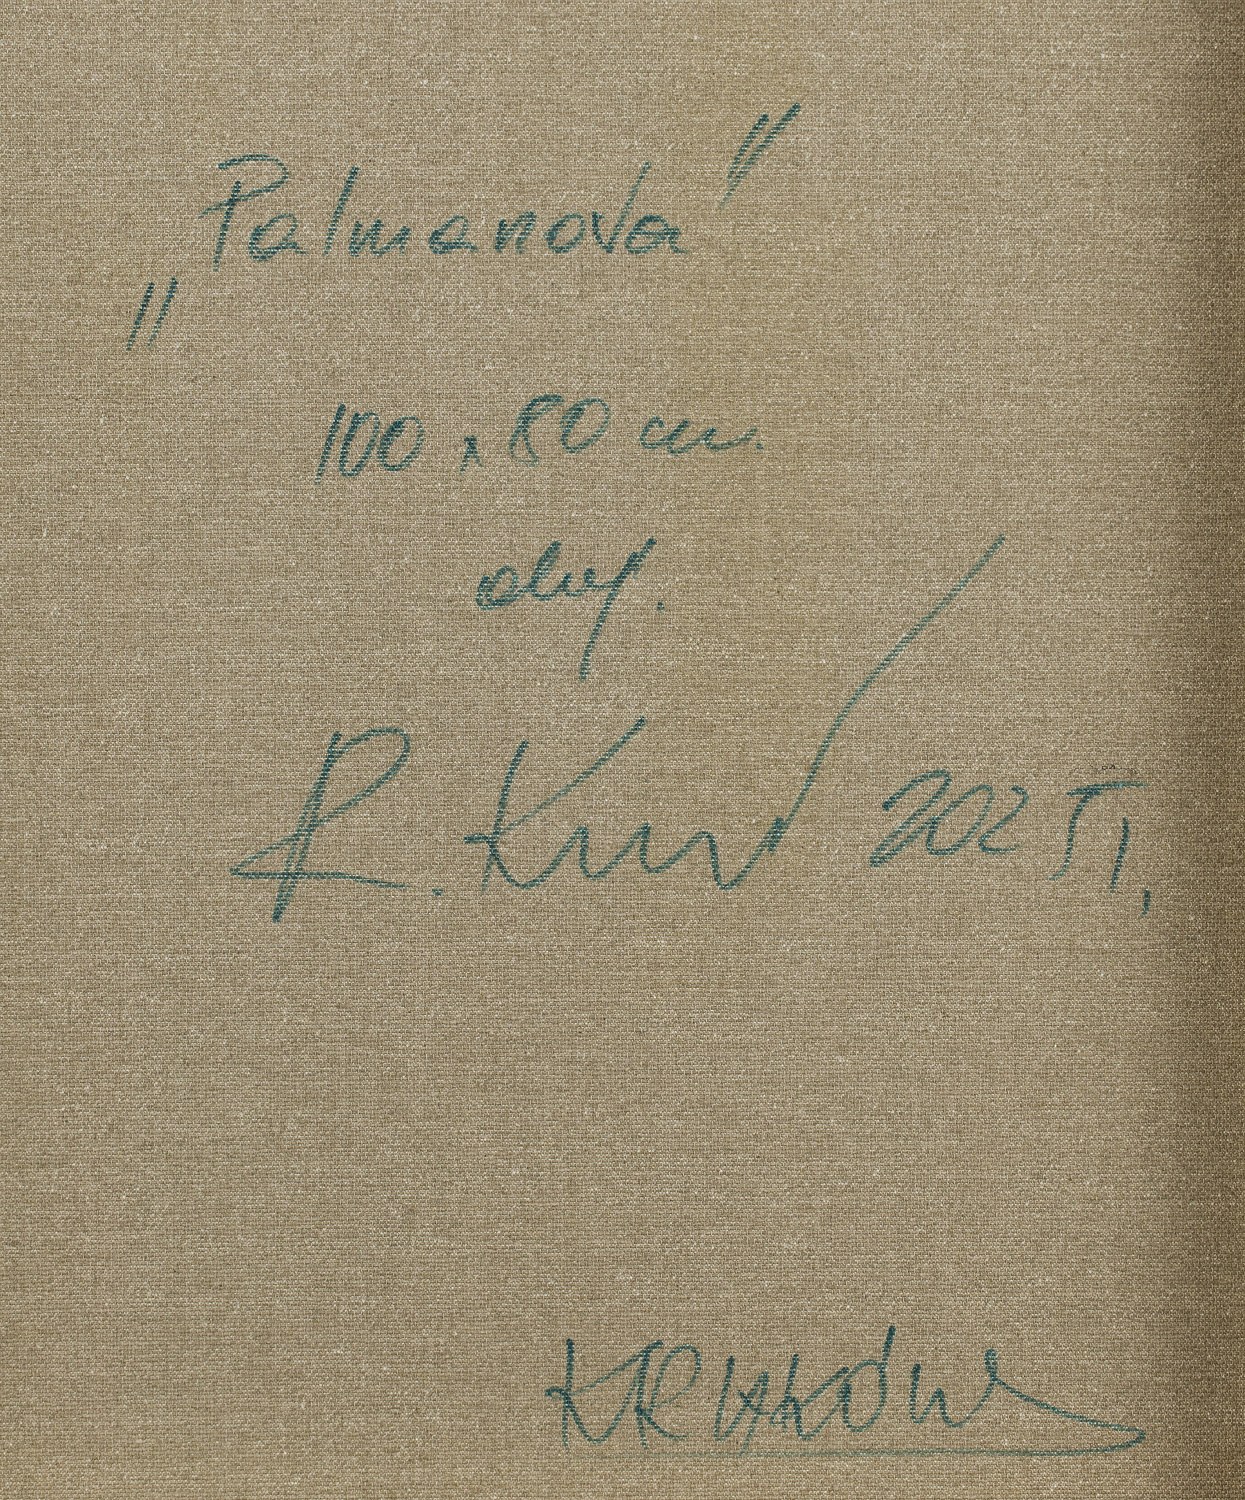 „Palmanova”
100 x 80 cm.
olej.
R. Kur 2025 r.
KRAKÓW